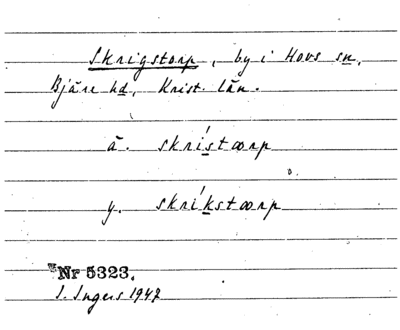 Skrigstorp, by i Hovs sn,
Bjäre hd, Krist. län.
ä. skrístorp
y. skríkstorp
Nr 5323.
I. Ingers 1947